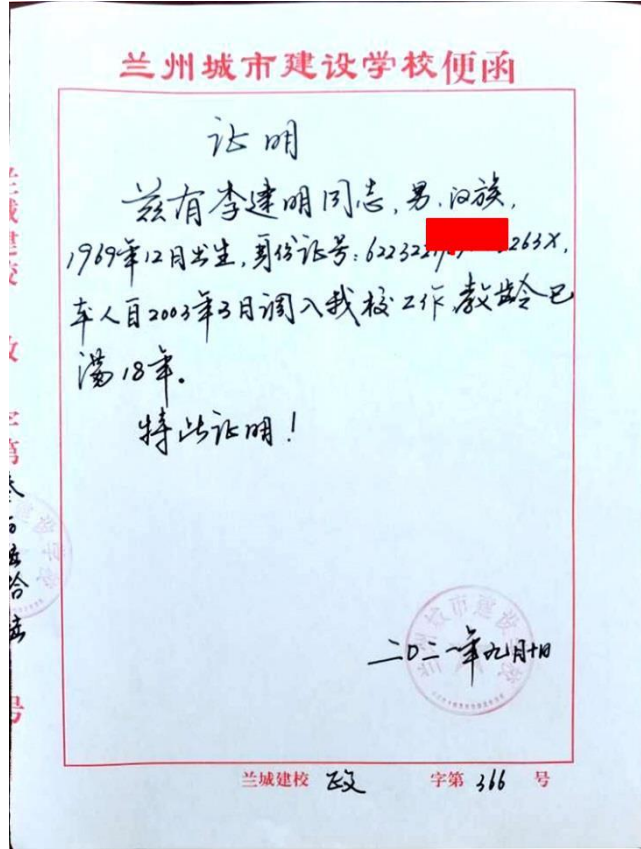 兰州城市建设学校便函
证明
兹有李建明同志,男,汉族,
1969年12月出生,身份证号:62232219 263X,
本人自2003年3月调入我校工作,教龄已
满18年。
特此证明!
兰州城市建设学校
二〇二一年九月十日
兰城建校 政 字第 366 号